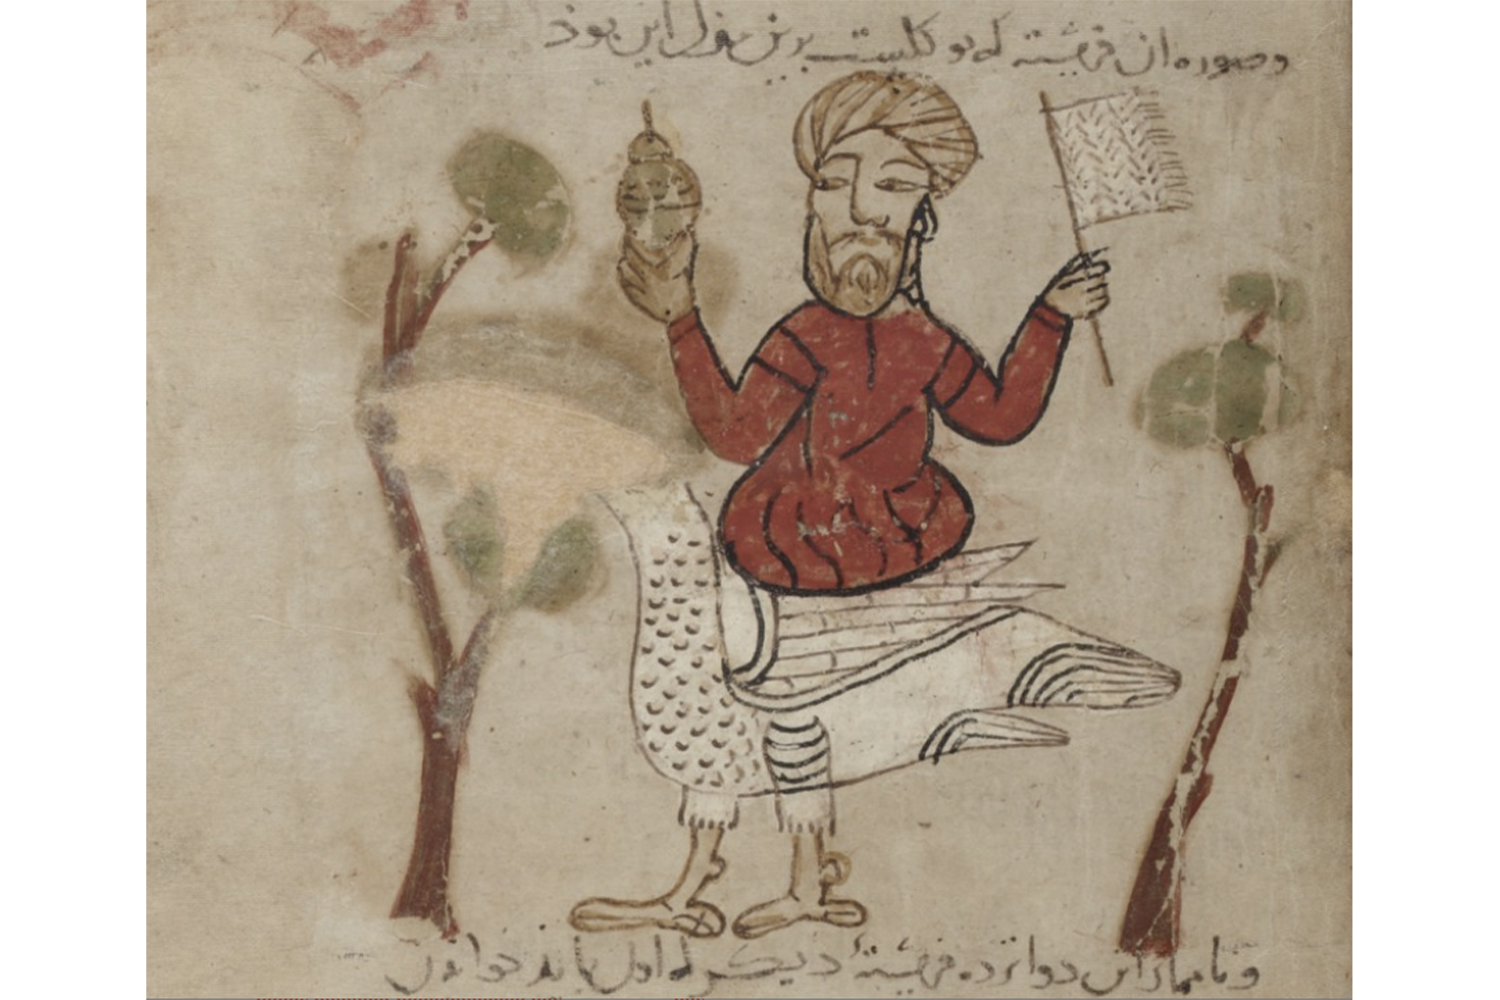 وصوره ان فرشته که موکلست برین منزل این بوذ
و نامهاء این دوانزده فرشتهٔ دیکر که اول بایذ خواندن